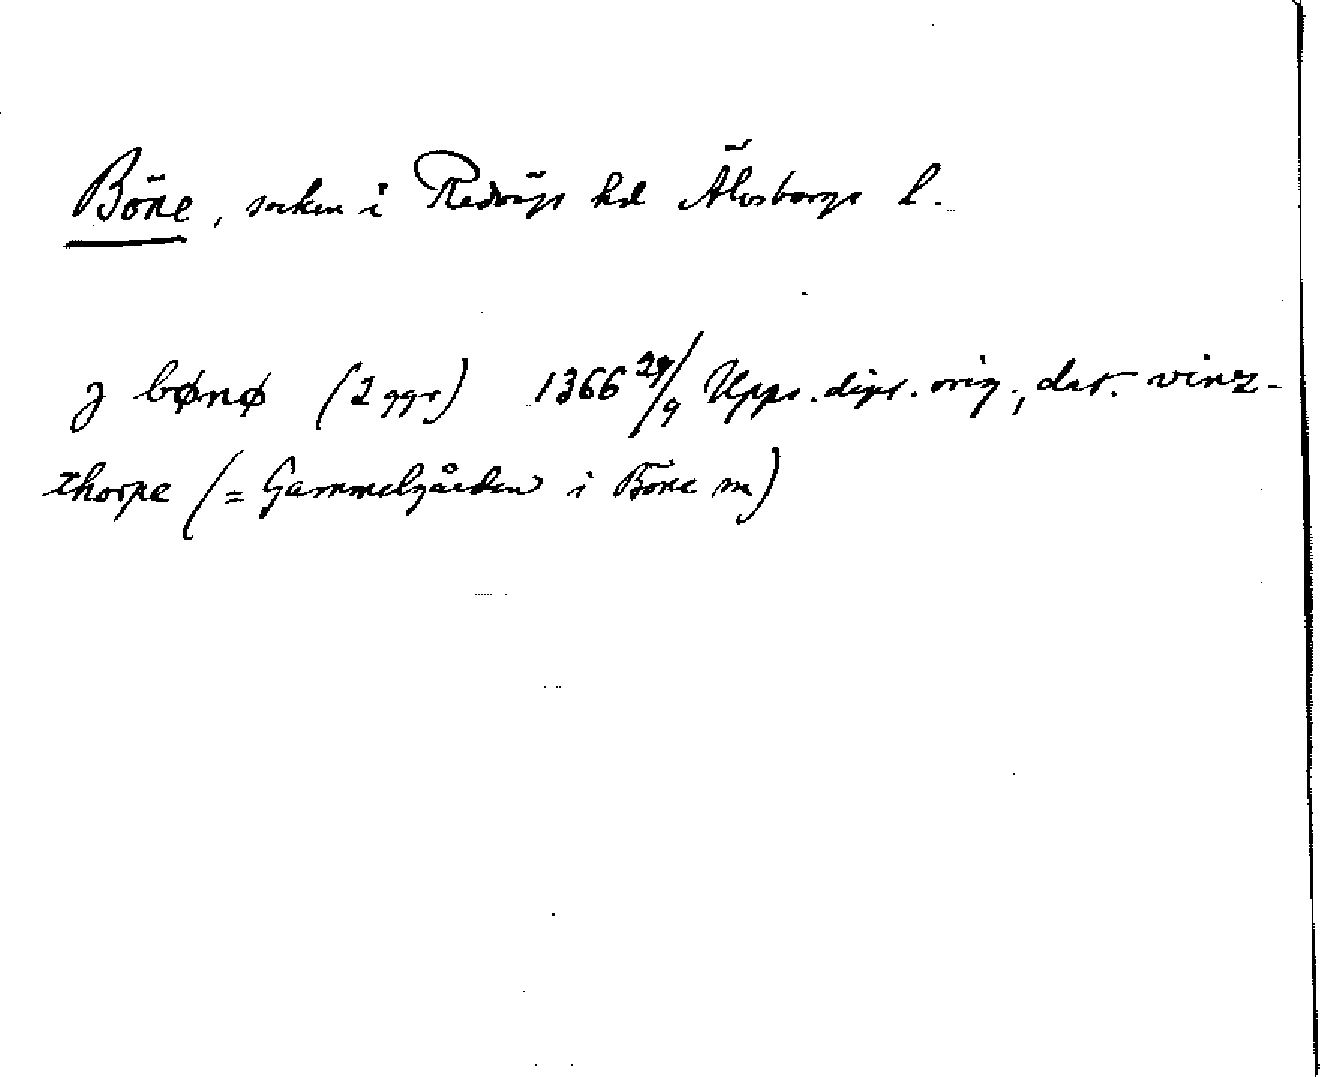 Böne, socken i Redvägs hd Älvsborgs l.
J bønø (2 ggr) 1366 29/9 Upps. dipl. orig., dat. vinz-
thorpe (= Gammelgården i Böne sn)